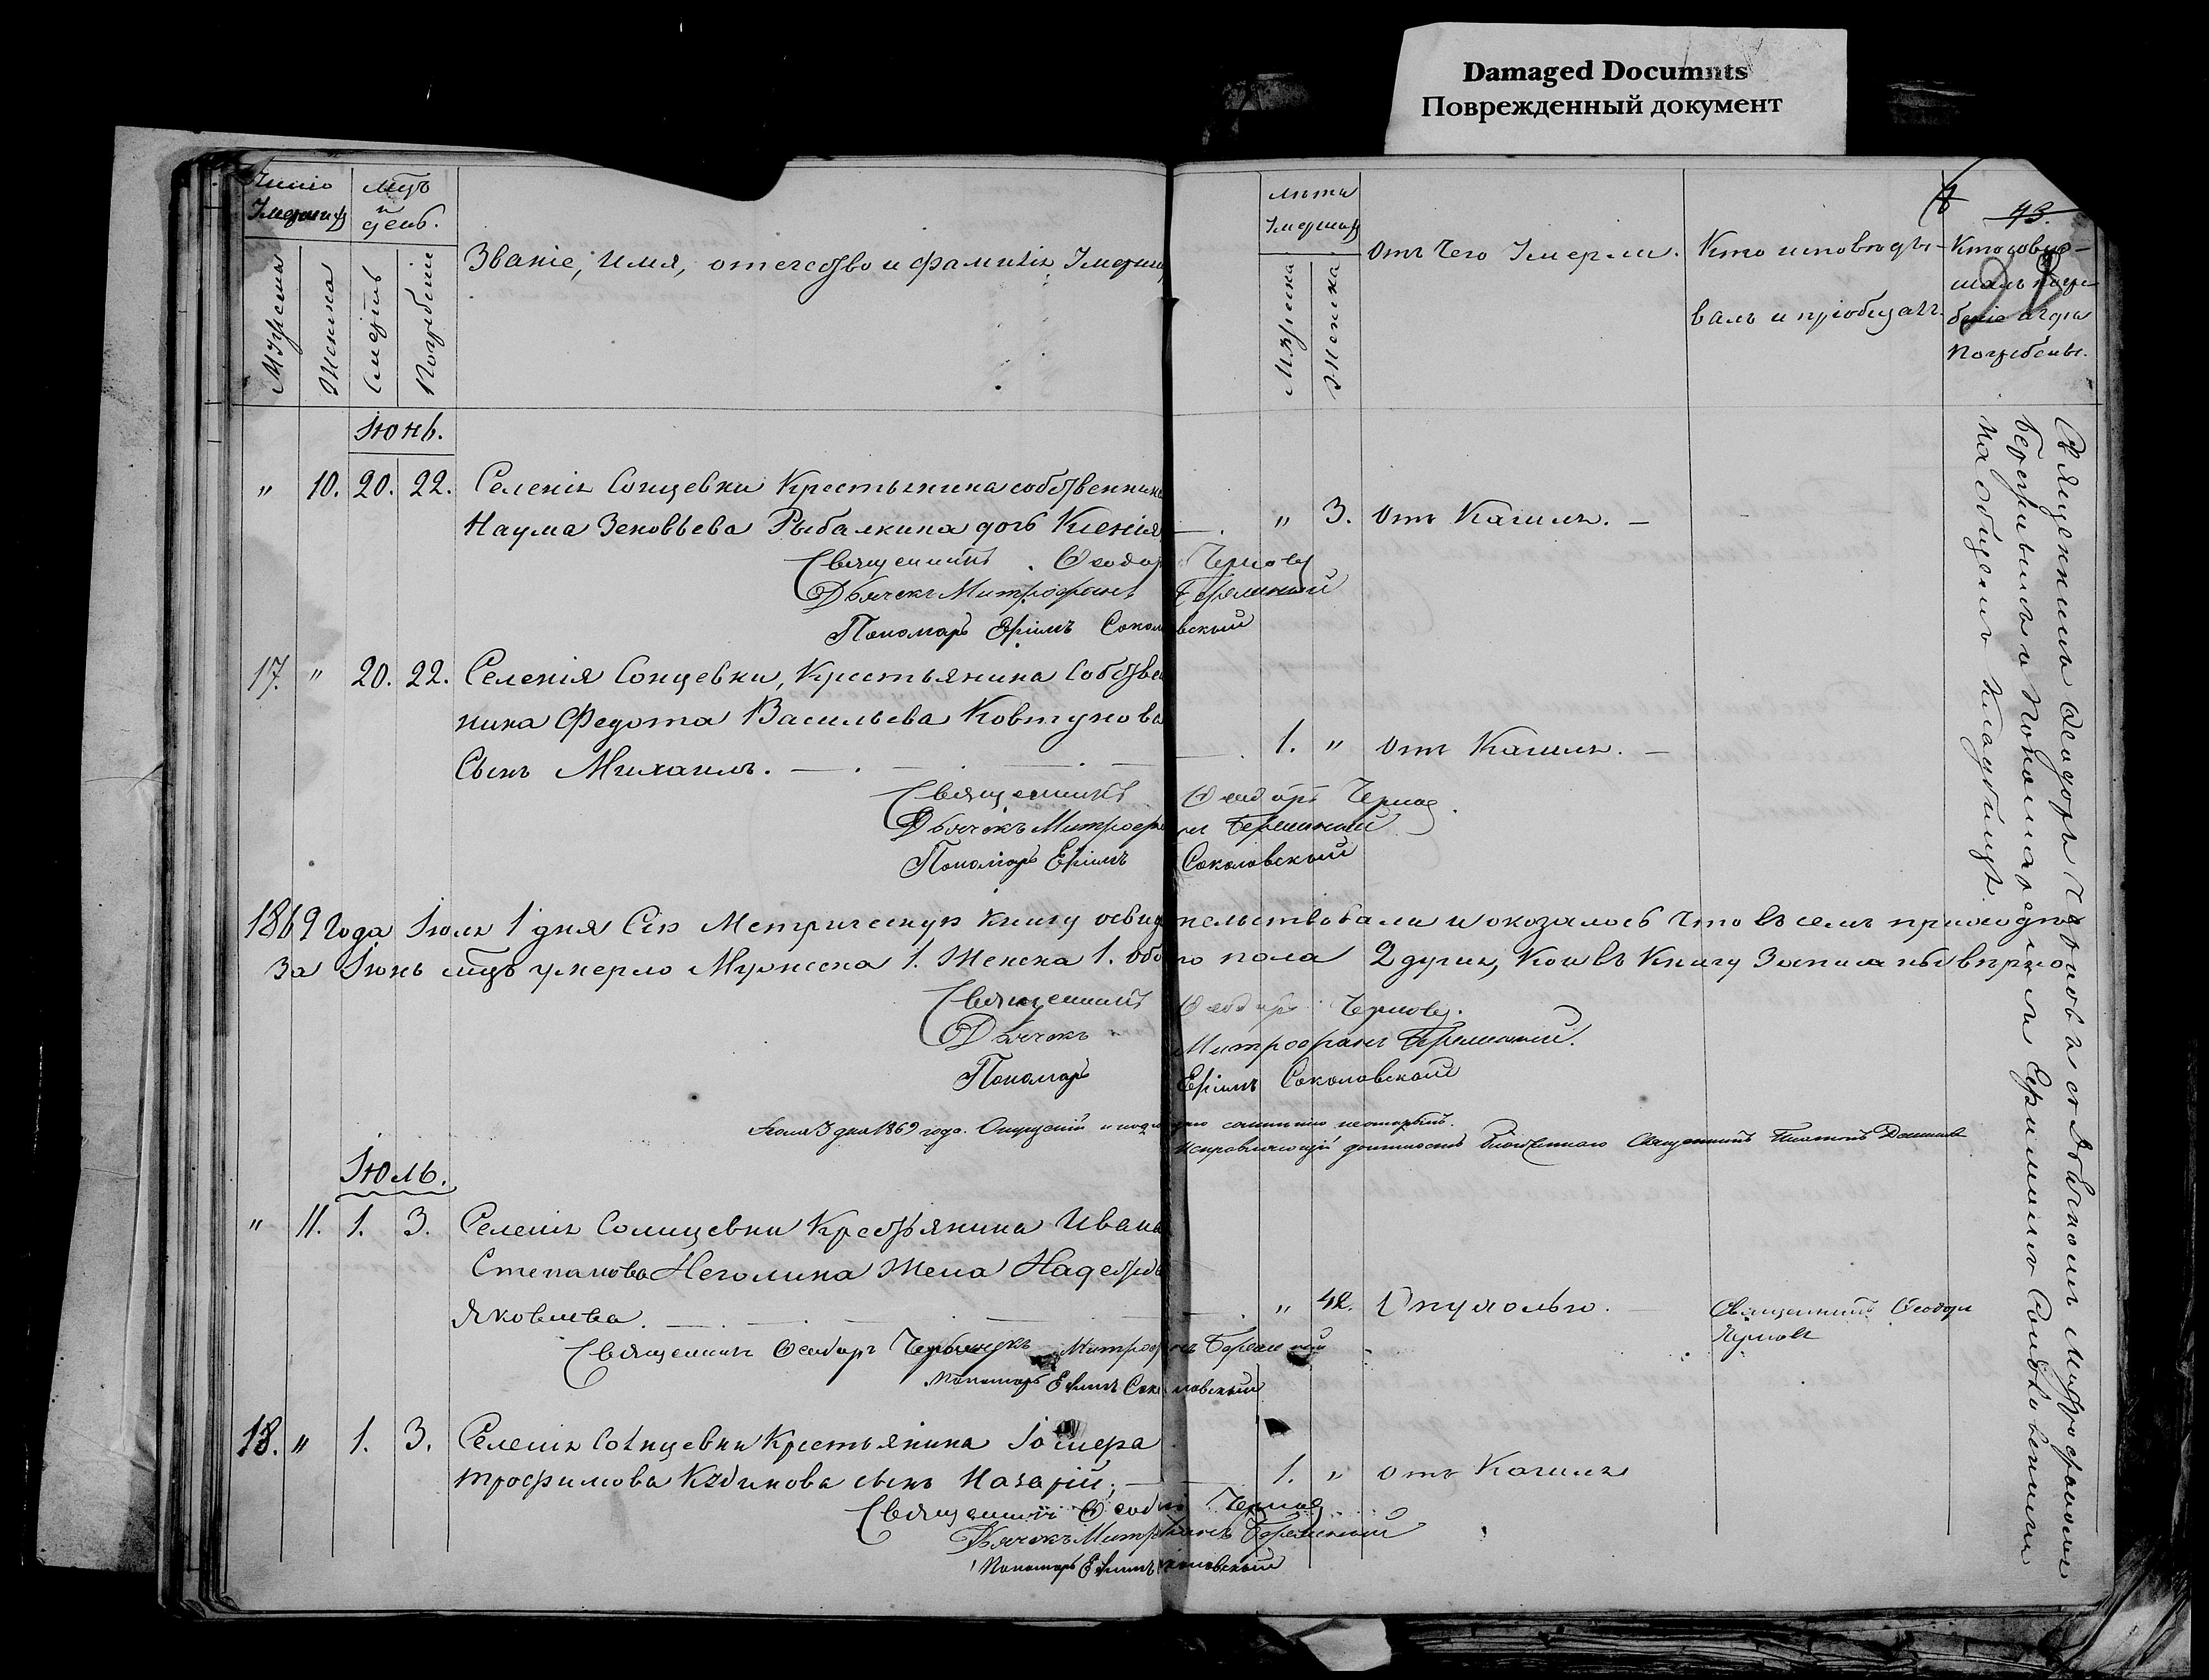 Damaged Documnts
Поврежденный документ
43.
мцъ
и
день.
Званіе, имя, отечество и фамилія Умерш
Мужеска
Женска
Смерть
Погребеніе
лѣта
Умершаго
Мужеска
Женска
Отъ чего Умерли.
Кто исповѣды-
валъ и пріобщалъ.
Кто совер-
шалъ погре-
беніе и гдѣ
Погребены.
Іюнь.
" 10. 20. 22. Селенія Сонцевки Крестьянина собственника
Наума Зеновьева Рыбалкина дочь Ксенія — " 3. Отъ Кашля. —
Священникъ Ѳеодоръ Черновъ
Дьячекъ Митрофанъ
Пономарь Ефимъ Соколовскій
17. " 20. 22. Селенія Сонцевки, Крестьянина Собстве
ника Федота Васильева Ковтунова
Сынъ Михаилъ. — 1. " отъ Кашля. —
Священникъ Ѳеодоръ Черновъ
Дьячекъ Митрофанъ
Пономарь Ефимъ Соколовскій
1869 Года Іюля 1 дня Сію Метрическую Книгу освидѣтельствовали и оказалось что въ семъ приходѣ
За Іюнь мцъ умерло Мужеска 1. Женска 1. обоего пола 2 души, кои въ Книгу Записаны вѣрно
Священникъ Ѳеодоръ Черновъ.
Дьячекъ Митрофанъ
Пономарь Ефимъ Соколовскій
Іюля 3 дня 1869 года.
Исправляющій должность Благочиннаго Священникъ Платонъ
Іюль.
" 11. 1. 3. Селенія Солнцевки Крестьянина Ивана
Степанова Жена Надежда
Яковлева. — " 42. —
Священникъ Ѳеодоръ
Черновъ
Священникъ Ѳеодоръ Митрофанъ
Пономарь Ефимъ Соколовскій
18. " 1. 3. Селенія Солнцевки Крестьянина
Трофимова сынъ Назарій. — 1. " отъ Кашля
Священникъ Ѳеодоръ Черновъ
Дьячекъ Митрофанъ
Пономарь Ефимъ Соколовскій
Священникъ Ѳеодоръ Черновъ съ Дьячкомъ Митрофаномъ
и Пономаремъ Ефимомъ Соколовскимъ
на общемъ кладбищѣ.